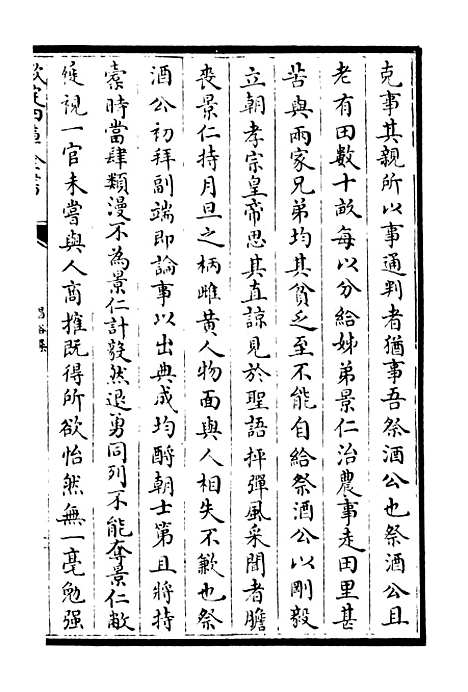 克事其親所以事通判者猶事吾祭酒公也祭酒公且
老有田數十畝每以分給姊弟景仁治農事走田里甚
苦與兩家兄弟均其貧乏至不能自給祭酒公以剛毅
立朝孝宗皇帝思其直諒見於聖語抨彈風采聞者膽
喪景仁持月旦之柄雌黃人物面與人相失不歉也祭
酒公初拜副端即論事以出典成均酹朝士第且將持
橐時當肆類漫不為景仁計毅然退勇同列不能奪景仁敝
屣視一官未嘗與人商搉既得所欲怡然無一毫勉强
欽定四庫全書
昌谷集